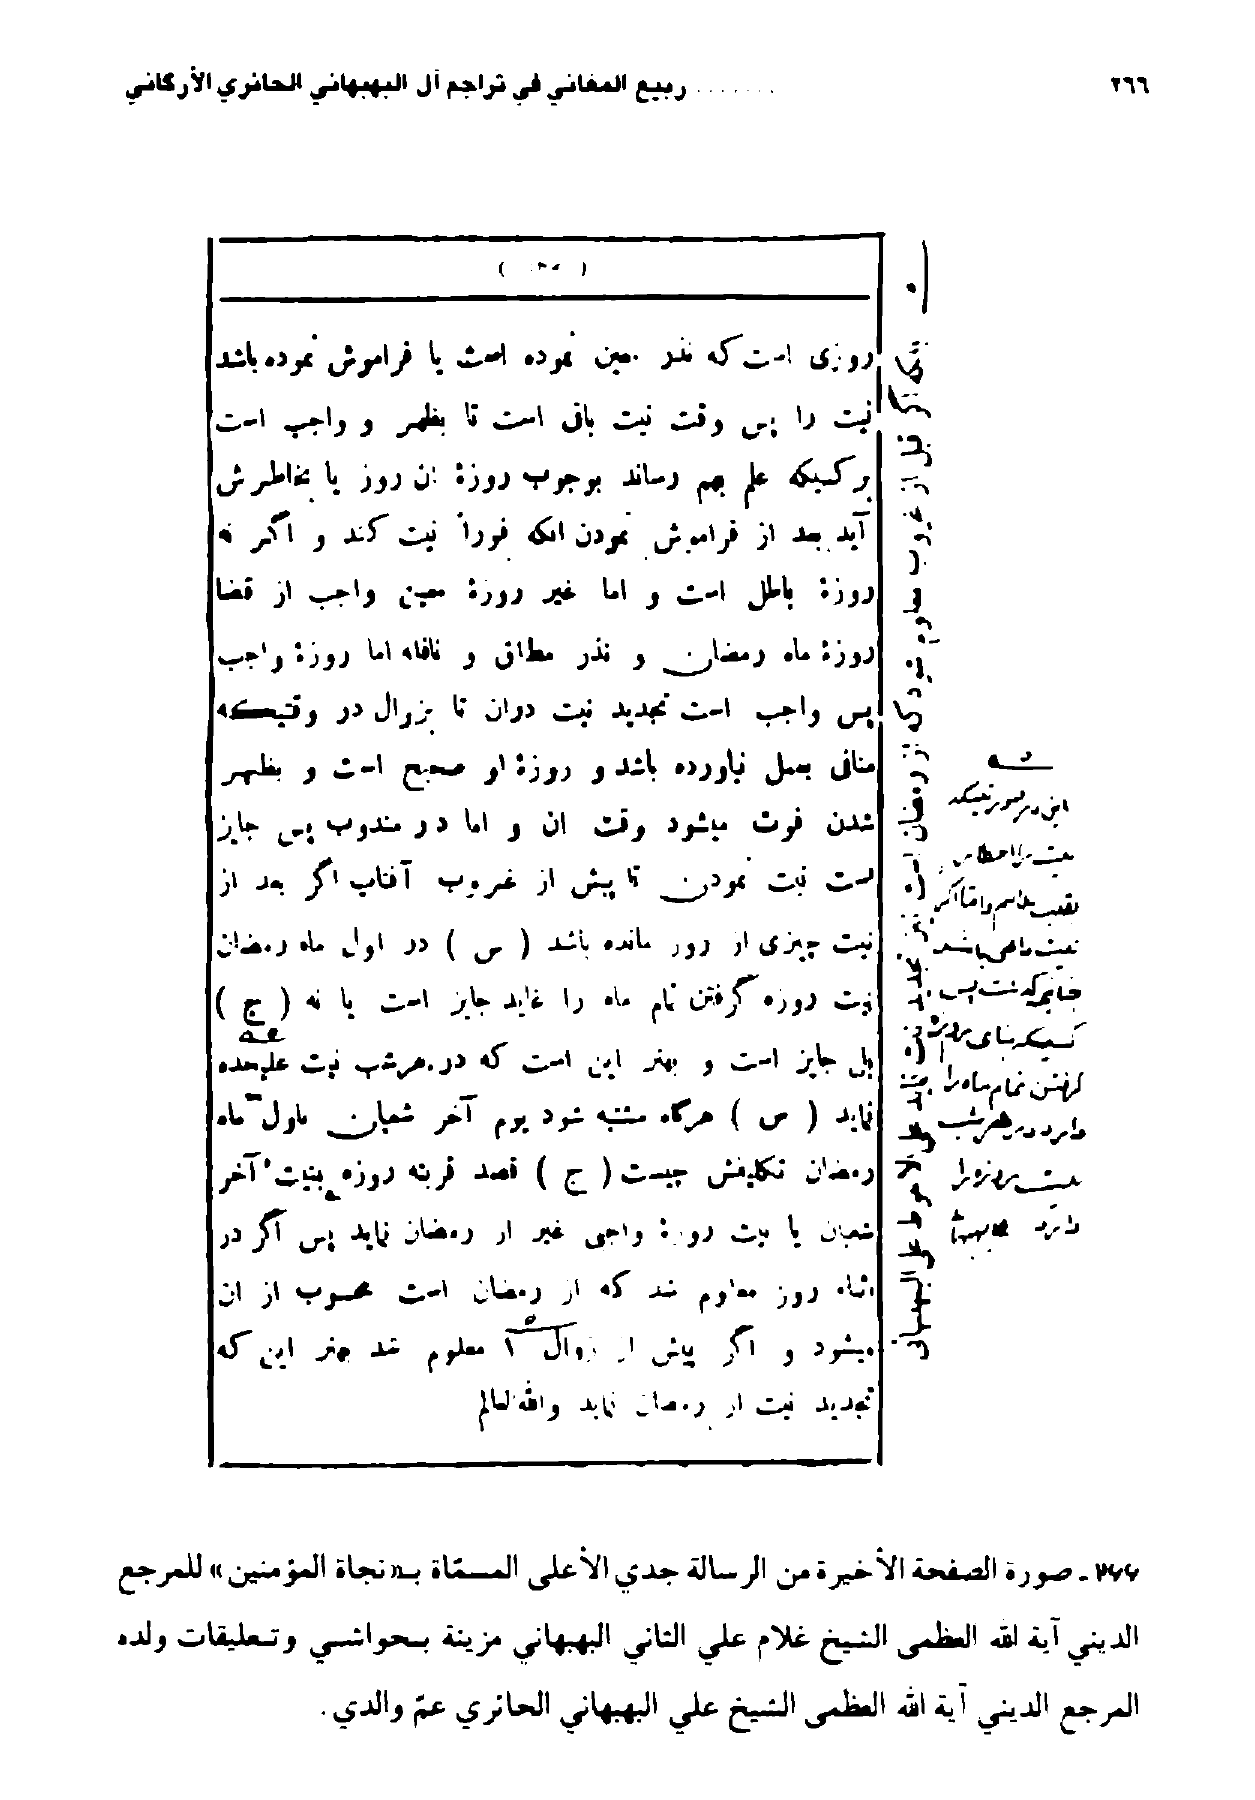 ٢٦٦ ....... ربيع المغاني في تراجم آل البهبهاني الحائري الأركاني
روزی است که نذر معین نموده است یا فراموش نموده باشد
نیت را پس وقت نیت باقی است تا بظهر و واجب است
بر کسیکه علم بهم رساند بوجوب روزهٔ ان روز یا بخاطرش
آید بعد از فراموش نمودن انکه فوراً نیت کند و اگر نه
روزهٔ باطل است و اما غیر روزهٔ معین واجب از قضا
روزهٔ ماه رمضان و نذر مطلق و نافله اما روزهٔ واجب
پس واجب است تجدید نیت دران تا بزوال در وقتیکه
منافی بعمل نیاورده باشد و روزهٔ او صحیح است و بظهر
شدن فوت میشود وقت ان و اما در مندوب پس جایز
است نیت نمودن تا پیش از غروب آفتاب اگر بعد از
نیت چیزی از روز مانده باشد ( س ) در اول ماه رمضان
نیت روزه گرفتن تمام ماه را نماید جایز است یا نه ( ج )
بل جایز است و بهتر این است که در هرشب نیت علیحده
نماید ( س ) هرگاه مشتبه شود یوم آخر شعبان باول ماه
رمضان تکلیفش چیست ( ج ) قصد قربة روزه بنیت آخر
شعبان یا نیت روزهٔ واجبی غیر از رمضان نماید پس اگر در
اثناء روز معلوم شد که از رمضان است محسوب از ان
میشود و اگر پیش از زوال معلوم شد بهتر این که
تجدید نیت از رمضان نماید والله العالم
بلکه اگر قبل از غروب معلوم شود که از رمضان است نیز تجدید نیت کند علی الاحوط علی البهبهانی
این در صورتیکه
نیت را اخطار
قلب بدانیم و اما اگر
نیت داعی باشد
چنانچه گذشت پس
کسیکه بنای روزه
گرفتن تمام ماه را
دارد در هر شب
نیت روزه را
دارد
٢٦٦ ـ صورة الصفحة الأخيرة من الرسالة جدي الأعلى المسمّاة بـ«نجاة المؤمنين» للمرجع
الديني آية الله العظمى الشيخ غلام علي الثاني البهبهاني مزينة بـحواشـي وتـعليقات ولده
المرجع الديني آية الله العظمى الشيخ علي البهبهاني الحائري عمّ والدي.